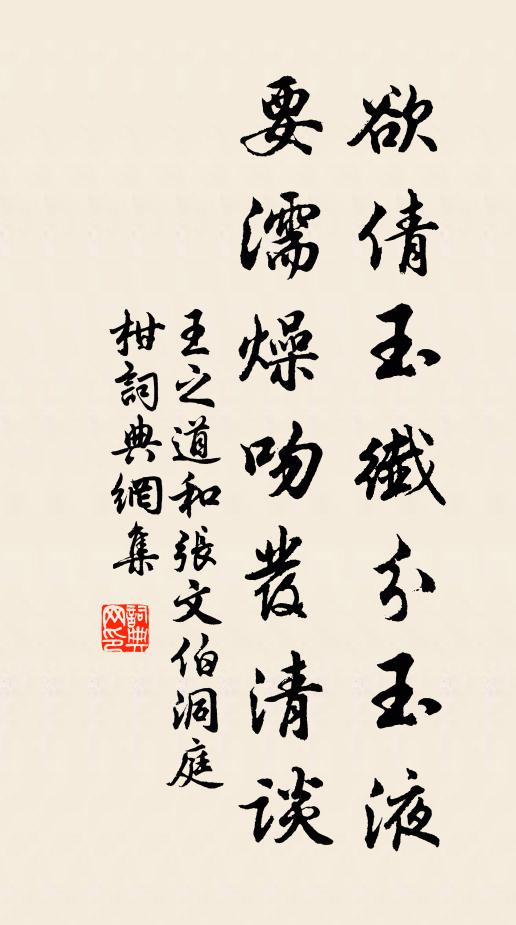 欲倩玉纖分玉液
要濡燥吻發清談
王之道和張文伯洞庭
柑詞典網集
詞典网印